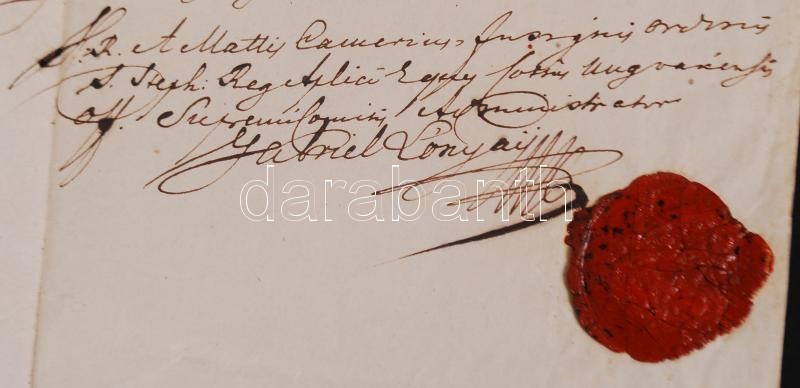 S. R. A Mattis Camerius, Insignis ordinis
S. Steph: Reg Aplici Eques Cottus Ungvariensis
off. Supremi Comitis Administrator
Gabriel Lonyaÿ
darabanth